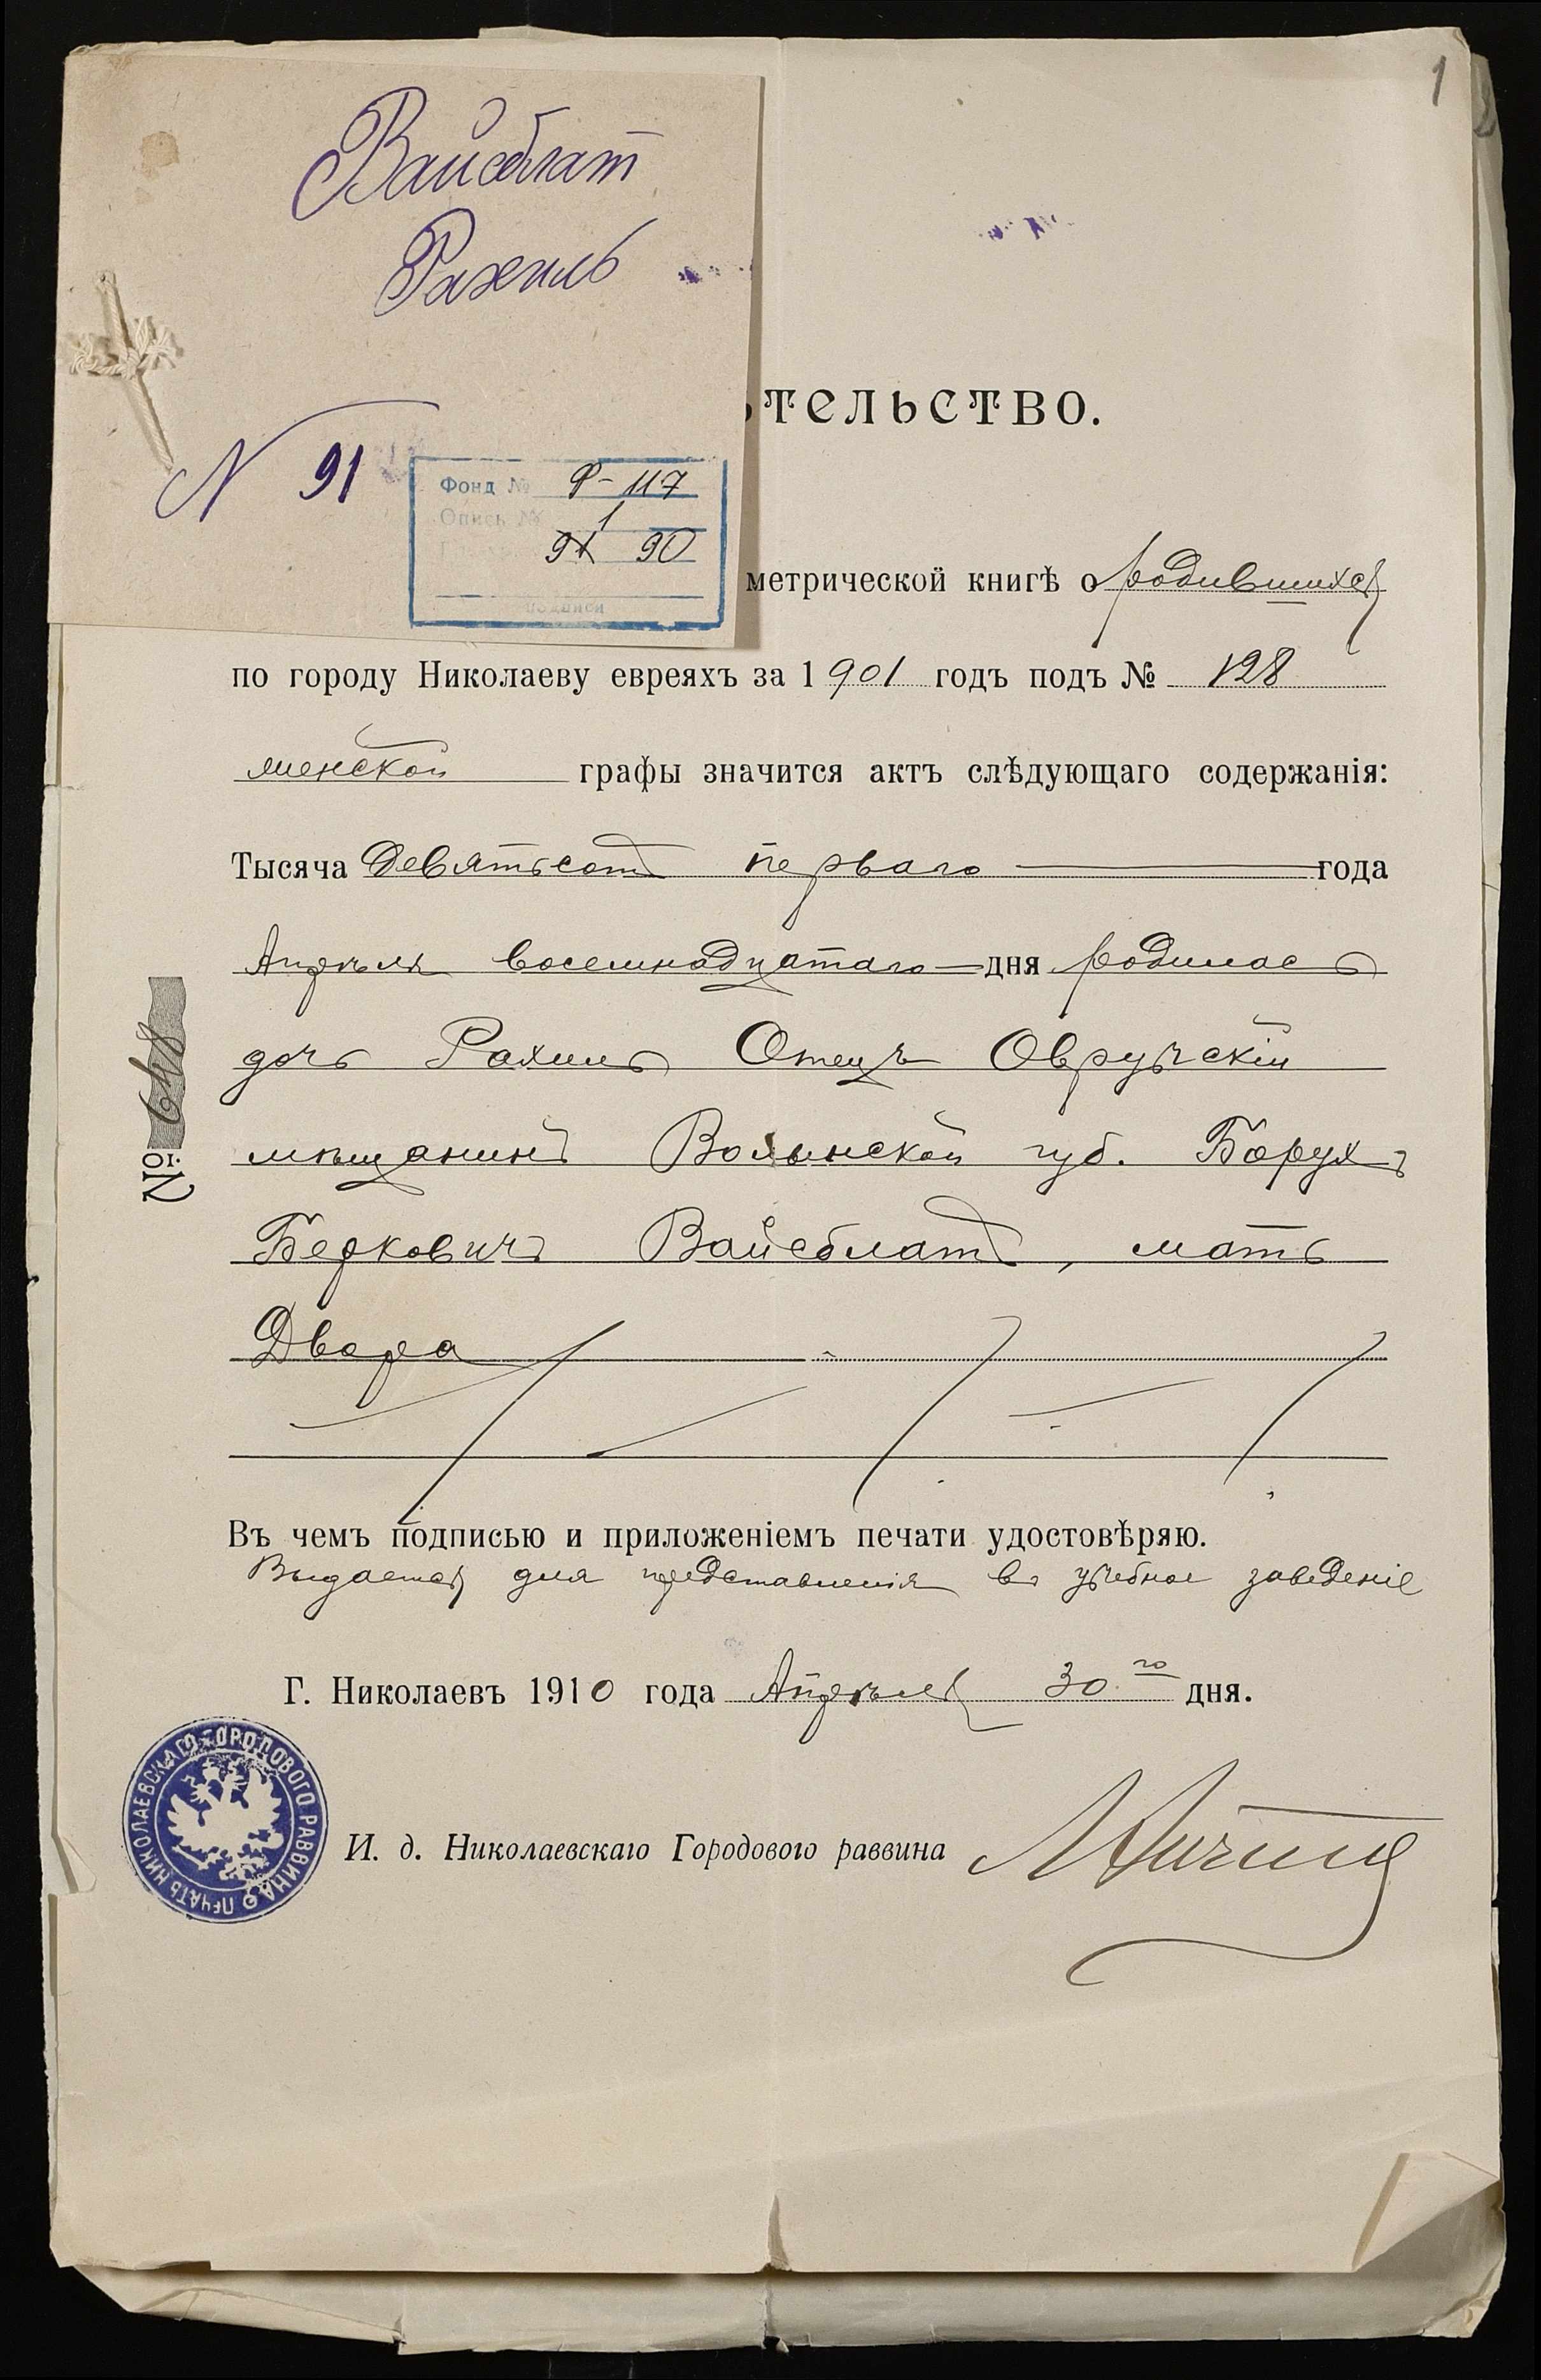 1
Вайсблат
Рахиль
N 91
Фонд № Ф-117
Опись № 1
91 90
ТЕЛЬСТВО.
метрической книгѣ о родившихся
по городу Николаеву евреяхъ за 1901 годъ подъ № 128
женской графы значится актъ слѣдующаго содержанія:
Тысяча девятьсотъ перваго года
Апрѣля восемнадцатаго дня родилась
дочь Рахиль Отецъ Овручскій
мѣщанинъ Волынской губ. Борухъ
Берковичъ Вайсблатъ, мать
Двора
№ 648
Въ чемъ подписью и приложеніемъ печати удостовѣряю.
Выдается для представленія въ учебное заведеніе
Г. Николаевъ 1910 года Апрѣля 30го дня.
ПЕЧАТЬ НИКОЛАЕВСКАГО ГОРОДОВОГО РАВВИНА
И. д. Николаевскаго Городового раввина